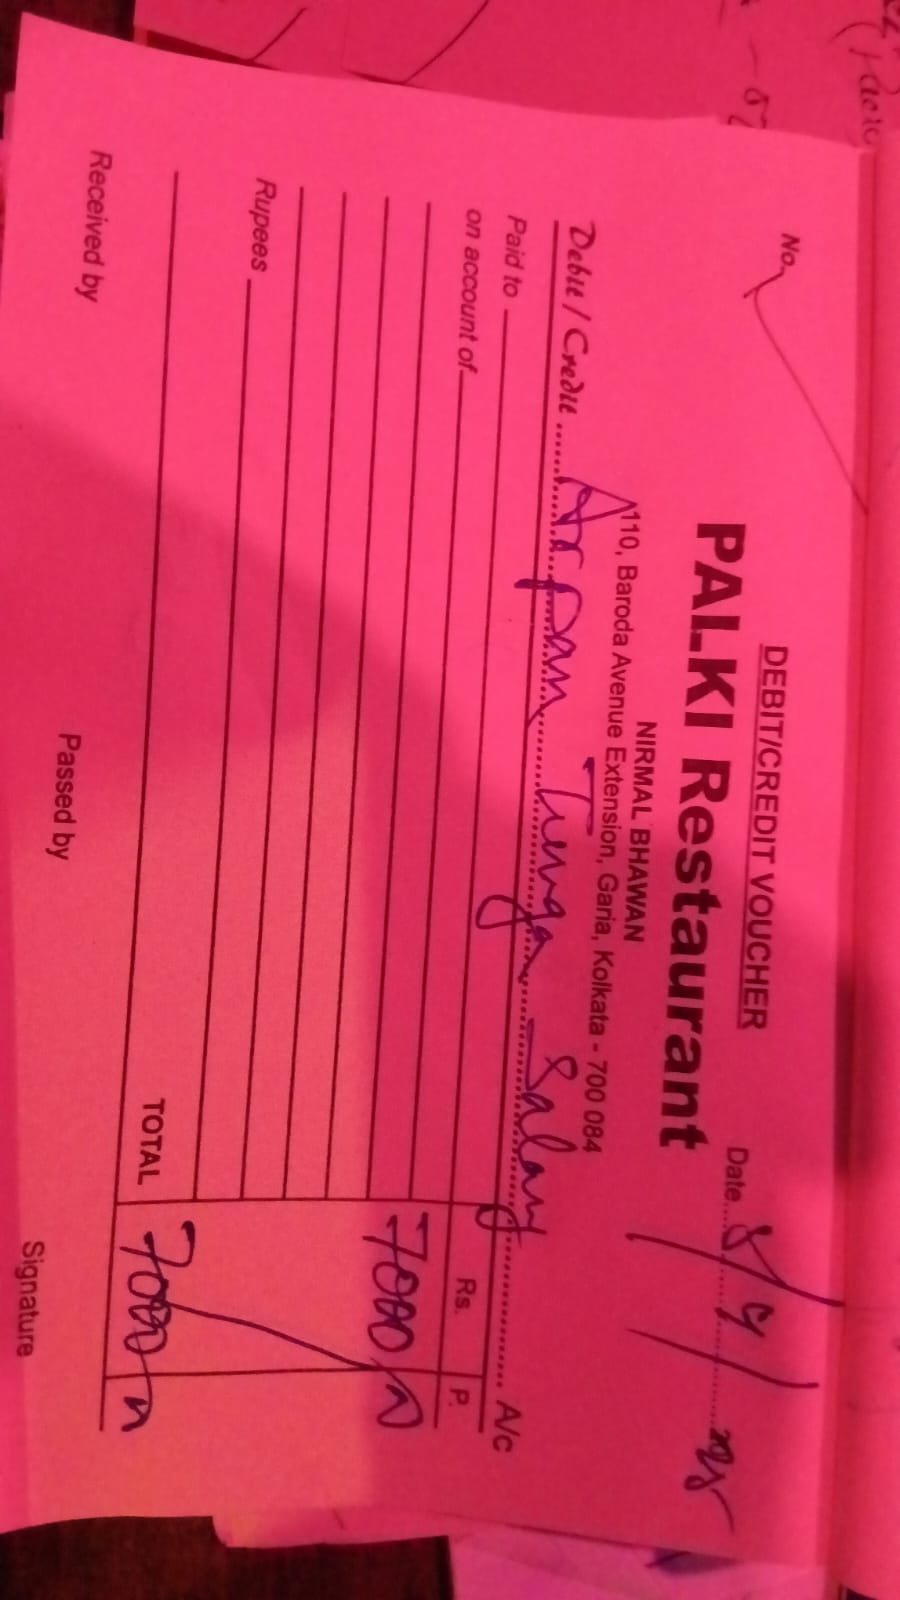 DEBIT/CREDIT VOUCHER
No. Date
PALKI Restaurant
NIRMAL BHAWAN
110, Baroda Avenue Extension, Garia, Kolkata - 700 084
Debit / Credit Arpan Tunga Salary A/c
Paid to Rs. P.
on account of 7000
Rupees
TOTAL 7000
Received by Passed by Signature